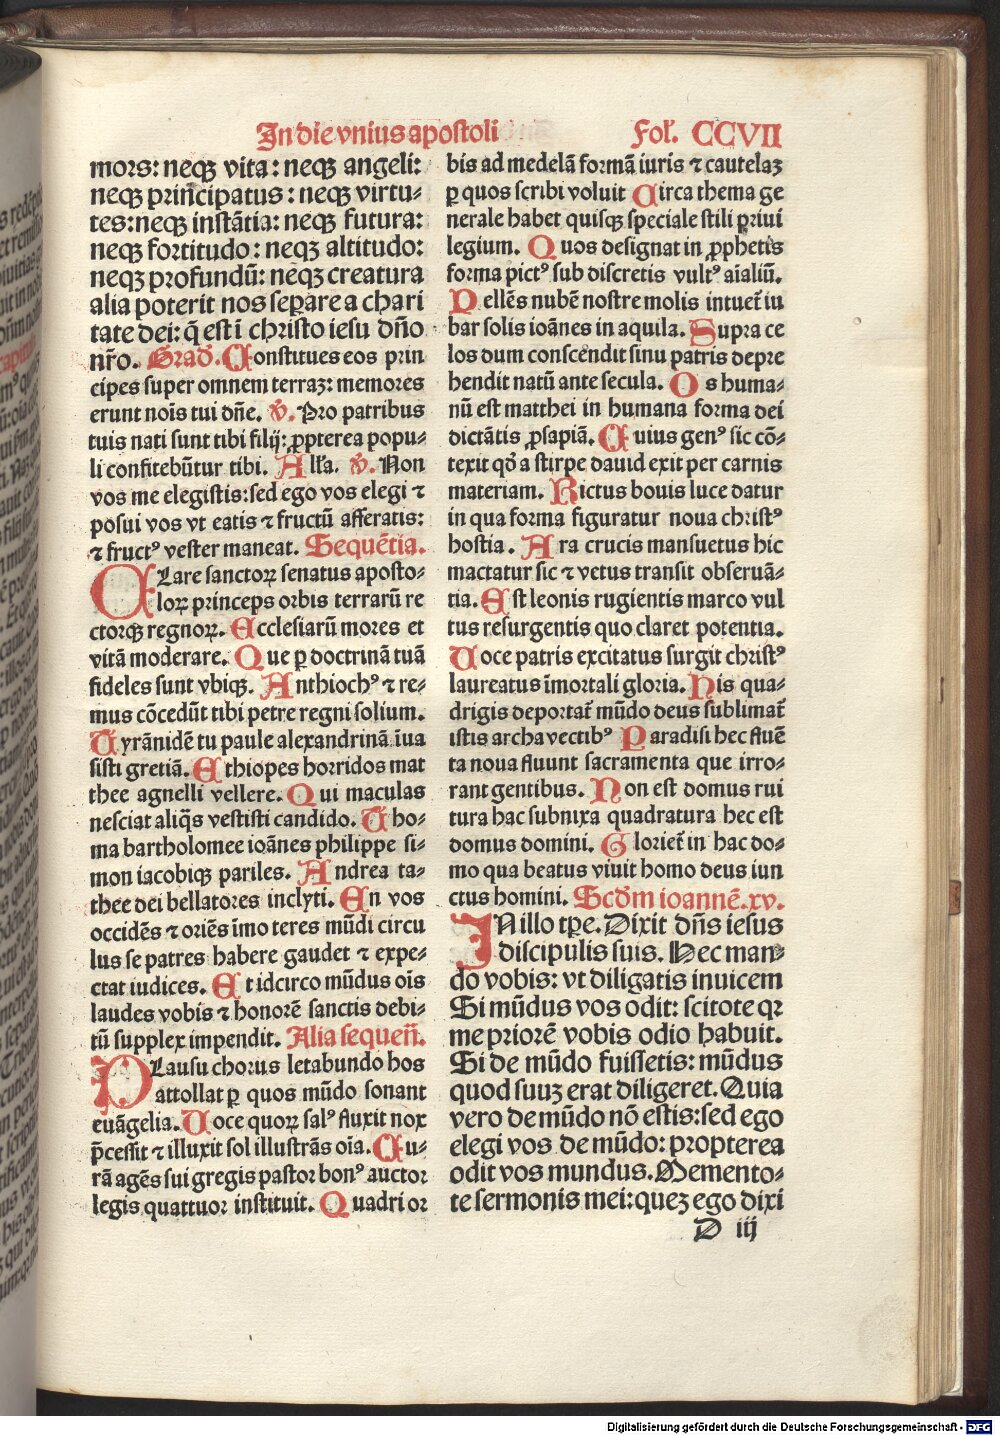 In die vnius apostoli Fol. CCVII
mors: neqꝫ vita: neqꝫ angeli:
neqꝫ principatus: neqꝫ virtu-
tes: neqꝫ instātia: neqꝫ futura:
neqꝫ fortitudo: neqꝫ altitudo:
neqꝫ profundū: neqꝫ creatura
alia poterit nos separe a chari
tate dei: q̄ est ī christo iesu dño
nr̄o. Grad̄. Constitues eos prin
cipes super omnem terraꝫ: memores
erunt noīs tui dñe. ℣. Pro patribus
tuis nati sunt tibi filij: ꝓpterea popu-
li confitebūtur tibi. Alľa. ℣. Non
vos me elegistis: sed ego vos elegi ⁊
posui vos vt eatis ⁊ fructū afferatis:
⁊ fructꝰ vester maneat. Sequētia.
CLare sanctoꝝ senatus aposto-
loꝝ princeps orbis terrarū re
ctorqꝫ regnoꝝ. Ecclesiarū mores et
vitā moderare. Que ꝑ doctrinā tuā
fideles sunt vbiqꝫ. Anthiochꝰ ⁊ re-
mus cōcedūt tibi petre regni solium.
Tyrānidē tu paule alexandrinā īua
sisti gretiā. Ethiopes horridos mat
thee agnelli vellere. Qui maculas
nesciat aliq̄s vestisti candido. Tho-
ma bartholomee ioānes philippe si-
mon iacobiqꝫ pariles. Andrea ta-
thee dei bellatores inclyti. En vos
occidēs ⁊ oriēs īmo teres mūdi circu
lus se patres habere gaudet ⁊ expe-
ctat iudices. Et idcirco mūdus oīs
laudes vobis ⁊ honorē sanctis debi-
tū supplex impendit. Alia sequen̄.
PLausu chorus letabundo hos
attollat ꝑ quos mūdo sonant
euāgelia. Uoce quoꝝ salꝰ fluxit nox
p̄cessit ⁊ illuxit sol illustrās oīa. Cu-
rā agēs sui gregis pastor bonꝰ auctor
legis quattuor instituit. Quadri or
bis ad medelā formā iuris ⁊ cautelaꝫ
ꝑ quos scribi voluit Circa thema ge
nerale habet quisqꝫ speciale stili priui
legium. Quos designat in ꝓphetis
forma pictꝰ sub discretis vultꝰ aīaliū.
Pellēs nubē nostre molis intuet̄ iu
bar solis ioānes in aquila. Supra ce
los dum conscendit sinu patris depre
hendit natū ante secula. Os huma-
nū est matthei in humana forma dei
dictātis ꝓsapiā. Cuius genꝰ sic cō-
texit qđ a stirpe dauid exit per carnis
materiam. Rictus bouis luce datur
in qua forma figuratur noua christꝰ
hostia. Ara crucis mansuetus hic
mactatur sic ⁊ vetus transit obseruā-
tia. Est leonis rugientis marco vul
tus resurgentis quo claret potentia.
Uoce patris excitatus surgit christꝰ
laureatus īmortali gloria. His qua-
drigis deportat̄ mūdo deus sublimat̄
istis archa vectibꝰ Paradisi hec fluē
ta noua fluunt sacramenta que irro-
rant gentibus. Non est domus rui
tura hac subnixa quadratura hec est
domus domini. Gloriet̄ in hac do-
mo qua beatus viuit homo deus iun
ctus homini. Scd̄m ioannē. xv.
IN illo tp̄e. Dixit dñs iesus
discipulis suis. Hec man-
do vobis: vt diligatis inuicem
Si mūdus vos odit: scitote qꝛ
me priorē vobis odio habuit.
Si de mūdo fuissetis: mūdus
quod suuꝫ erat diligeret. Quia
vero de mūdo nō estis: sed ego
elegi vos de mūdo: propterea
odit vos mundus. Memento-
te sermonis mei: queꝫ ego dixi
D iij
Digitalisierung gefördert durch die Deutsche Forschungsgemeinschaft - DFG